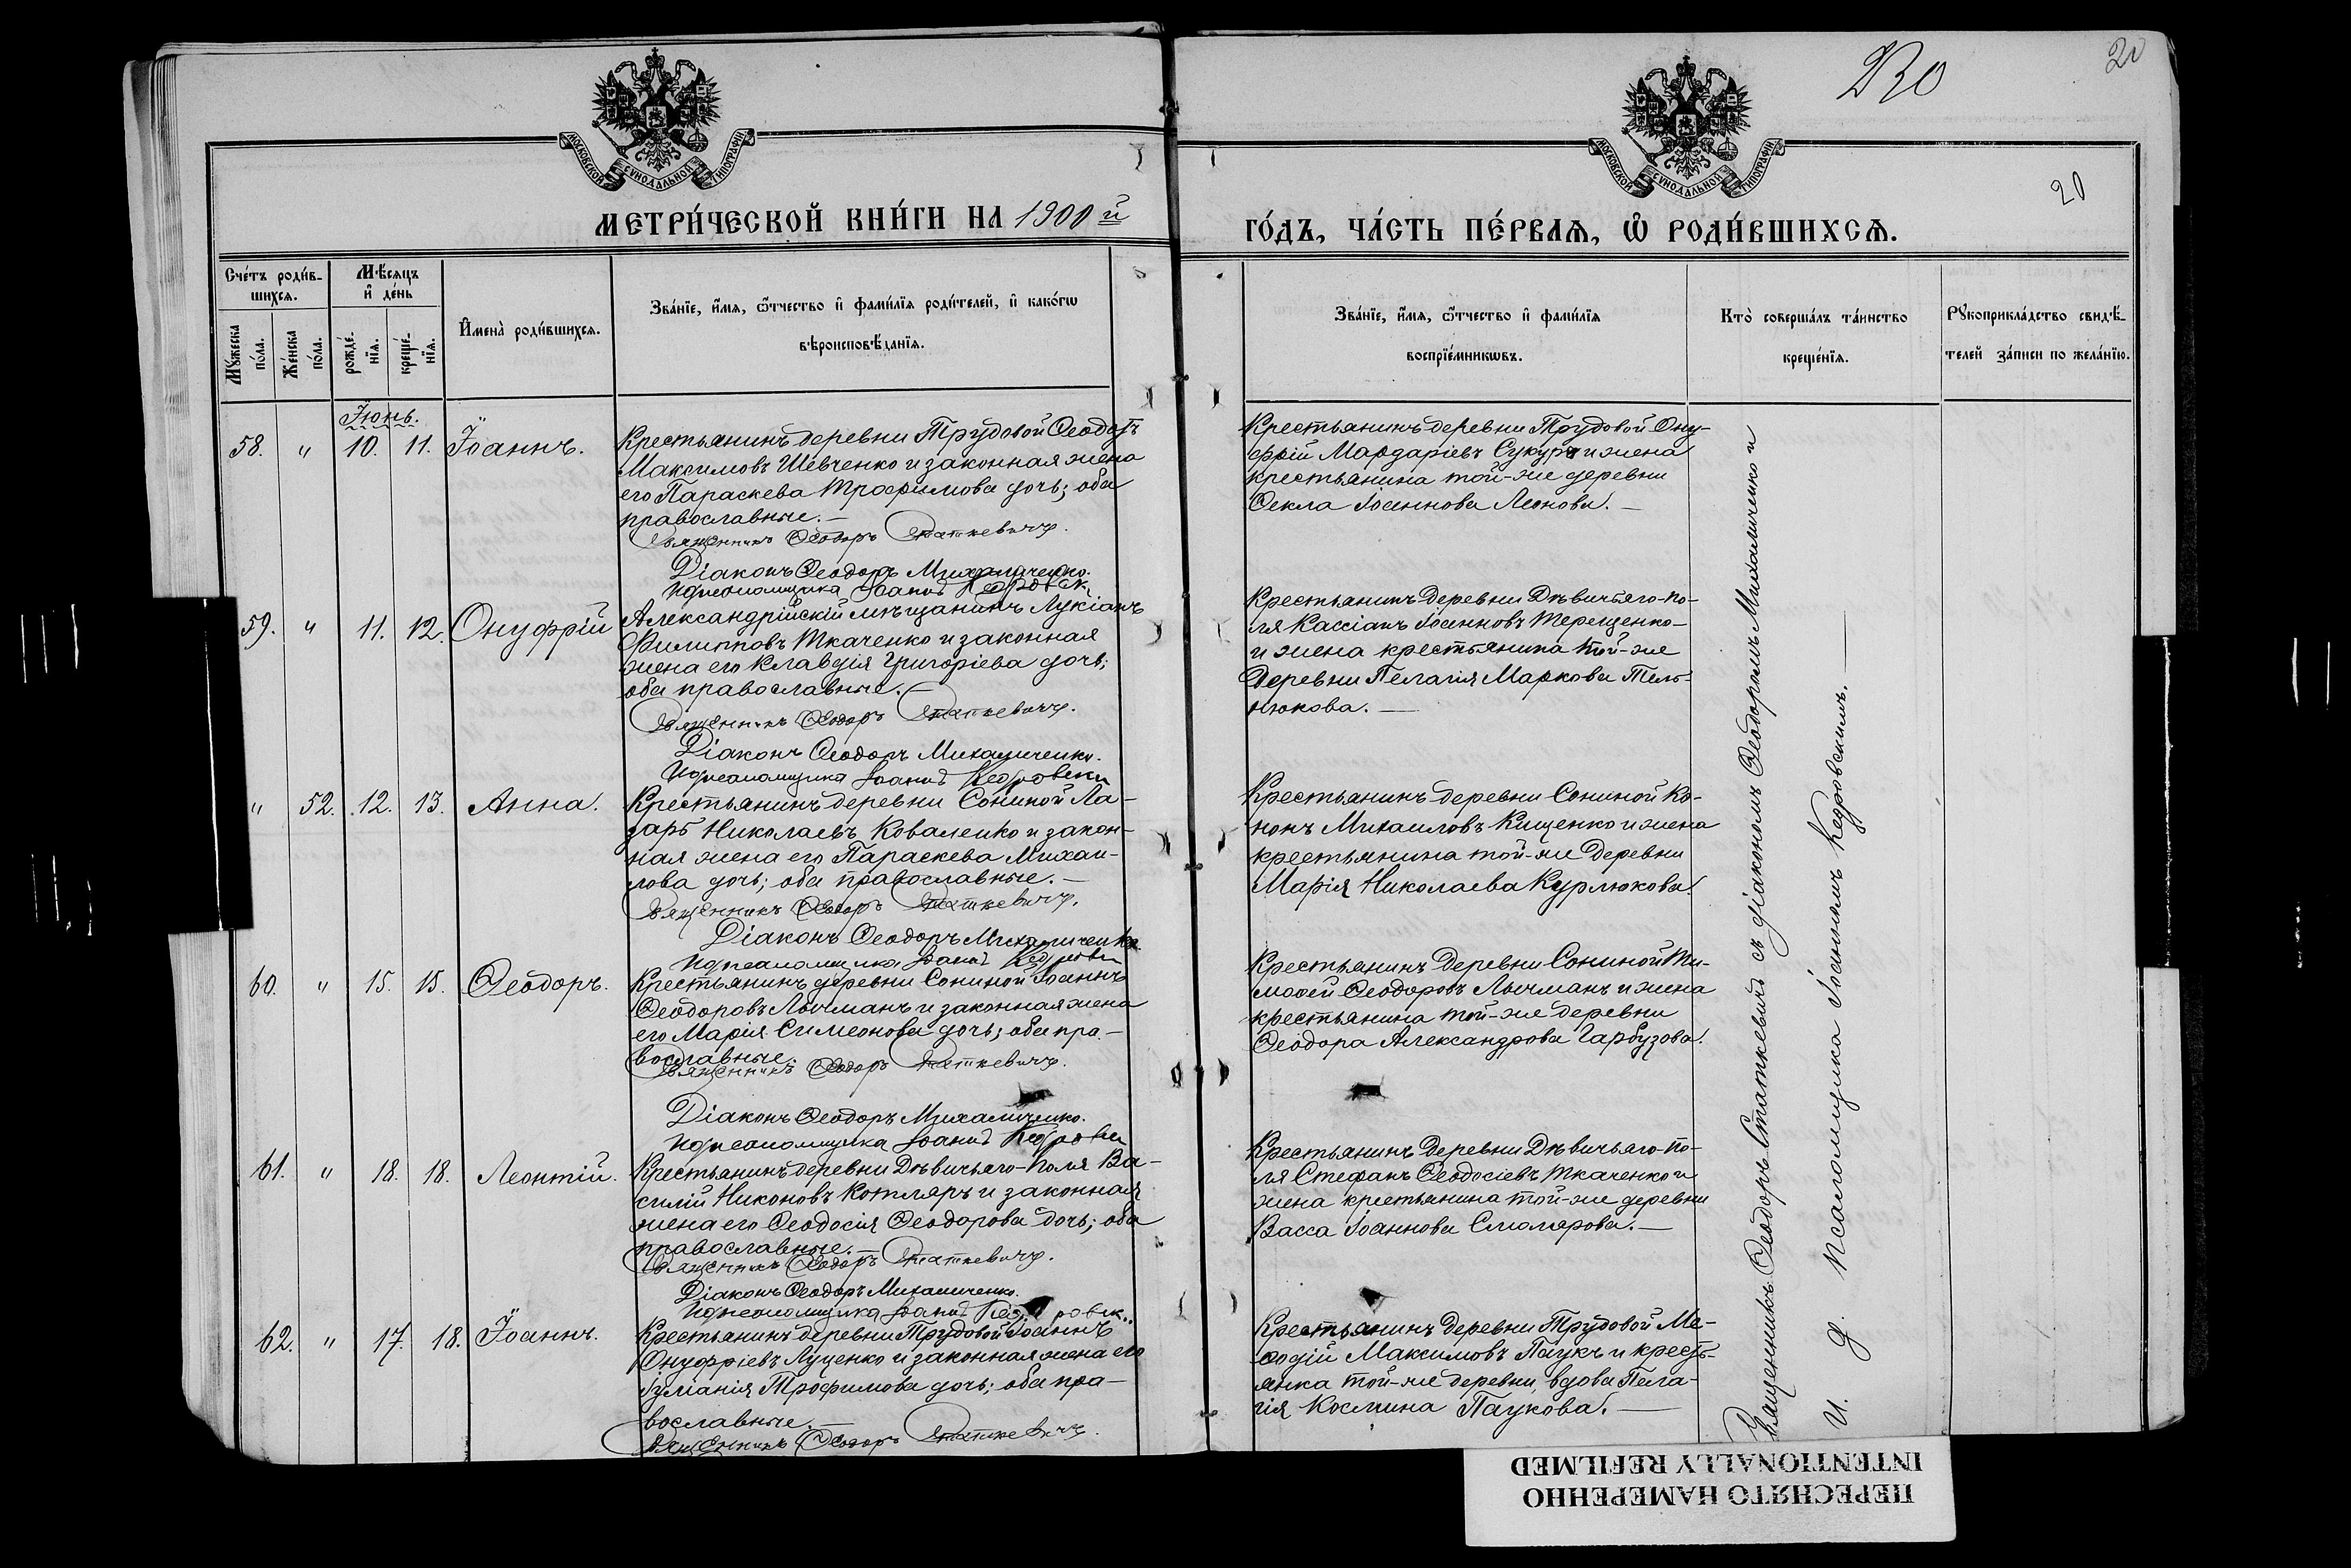 20
ВІО
20
МОСКОВСКОЙ СѴНОДАЛЬНОЙ ТИПОГРАФІИ
МОСКОВСКОЙ СѴНОДАЛЬНОЙ ТИПОГРАФІИ
МЕТРИ́ЧЕСКОЙ КНИ́ГИ НА 1900й
ГО́ДЪ, ЧА́СТЬ ПЕ́РВАѦ, Ѽ РОДИ́ВШИХСѦ.
Сче́тъ роди́в-
шихся.
Мѣ́сяцъ
и҆ де́нь
Мꙋ́жеска
по́ла.
Же́нска
по́ла.
рожде́-
нїя.
креще́-
нїя.
И҆мена̀ роди́вшихся.
Зва́нїе, и҆́мя, ѻ҆́тчество и҆ фами́лїя роди́телей, и҆ како́гѡ
вѣроисповѣ́данїя.
Зва́нїе, и҆́мя, ѻ҆́тчество и҆ фами́лїя
воспрїе́мникѡвъ.
Кто̀ соверша́лъ та́инство
креще́нїя.
Рꙋкоприкла́дство свидѣ́-
телей за́писи по жела́нїю.
Іюнь.
58. " 10. 11. Іоаннъ.
Крестьянинъ деревни Трудовой Ѳеодотъ
Максимовъ Шевченко и законная жена
его Параскева Трофимова дочь; оба
православные.—
Священникъ Ѳеодоръ Статкевичъ.
Діаконъ Ѳеодоръ Михаличенко.
И д псаломщика Іоаннъ Кедровск.
Крестьянинъ деревни Трудовой Ону-
фрій Мардаріевъ Сукуръ и жена
крестьянина той-же деревни
Ѳекла Іоаннова Леонова.—
59. " 11. 12. Онуфрій
Александрійскій мѣщанинъ Лукіанъ
Филипповъ Ткаченко и законная
жена его Клавдія Григоріева дочь;
оба православные.—
Священникъ Ѳеодоръ Статкевичъ.
Діаконъ Ѳеодоръ Михаличенко.
И д псаломщика Іоаннъ Кедровски
Крестьянинъ деревни Дѣвичьяго-по-
ля Кассіанъ Іоанновъ Терещенко-
и жена крестьянина той-же
деревни Пелагія Маркова Тель-
нюкова.—
" 52. 12. 13. Анна.
Крестьянинъ деревни Сониной Ла-
зарь Николаевъ Коваленко и закон-
ная жена его Параскева Михаи-
лова дочь; оба православные.—
Священникъ Ѳеодоръ Статкевичъ.
Діаконъ Ѳеодоръ Михаличенко.
И д псаломщика Іоаннъ Кедровски
Крестьянинъ деревни Сониной Ко-
нонъ Михаиловъ Кищенко и жена
крестьянина той-же деревни
Марія Николаева Курлюкова.
60. " 15. 15. Ѳеодоръ.
Крестьянинъ деревни Сониной Іоаннъ
Ѳеодоровъ Лычманъ и законная жена
его Марія Симеонова дочь; оба пра-
вославные.
Священникъ Ѳеодоръ Статкевичъ.
Діаконъ Ѳеодоръ Михаличенко.
И д псаломщика Іоаннъ Кедровски
Крестьянинъ деревни Сониной Ти-
моѳей Ѳеодоровъ Лычманъ и жена
крестьянина той-же деревни
Ѳеодора Александрова Гарбузова.
61. " 18. 18. Леонтій.
Крестьянинъ деревни Дѣвичьяго-поля Ва-
силій Никоновъ Котляръ и законная
жена его Ѳеодосія Ѳеодорова дочь; оба
православные.—
Священникъ Ѳеодоръ Статкевичъ.
Діаконъ Ѳеодоръ Михаличенко.
И д псаломщика Іоаннъ Кедровск.
Крестьянинъ деревни Дѣвичьяго-по-
ля Стефанъ Ѳеодосіевъ Ткаченко и
жена крестьянина той-же деревни
Васса Іоаннова Смолярова.—
62. " 17. 18. Іоаннъ.
Крестьянинъ деревни Трудовой Іоаннъ
Онуфріевъ Луценко и законная жена его
Іуліанія Трофимова дочь; оба пра-
вославные.—
Священникъ Ѳеодоръ Статкевичъ.
Крестьянинъ деревни Трудовой Ме-
ѳодій Максимовъ Паукъ и кресть-
янка той-же деревни, вдова Пела-
гія Космина Паукова.—
Священникъ Ѳеодоръ Статкевичъ съ діакономъ Ѳеодоромъ Михаличенко и
И. д. псаломщика Іоанномъ Кедровскимъ.—
ПЕРЕСНЯТО НАМЕРЕННО
INTENTIONALLY REFILMED